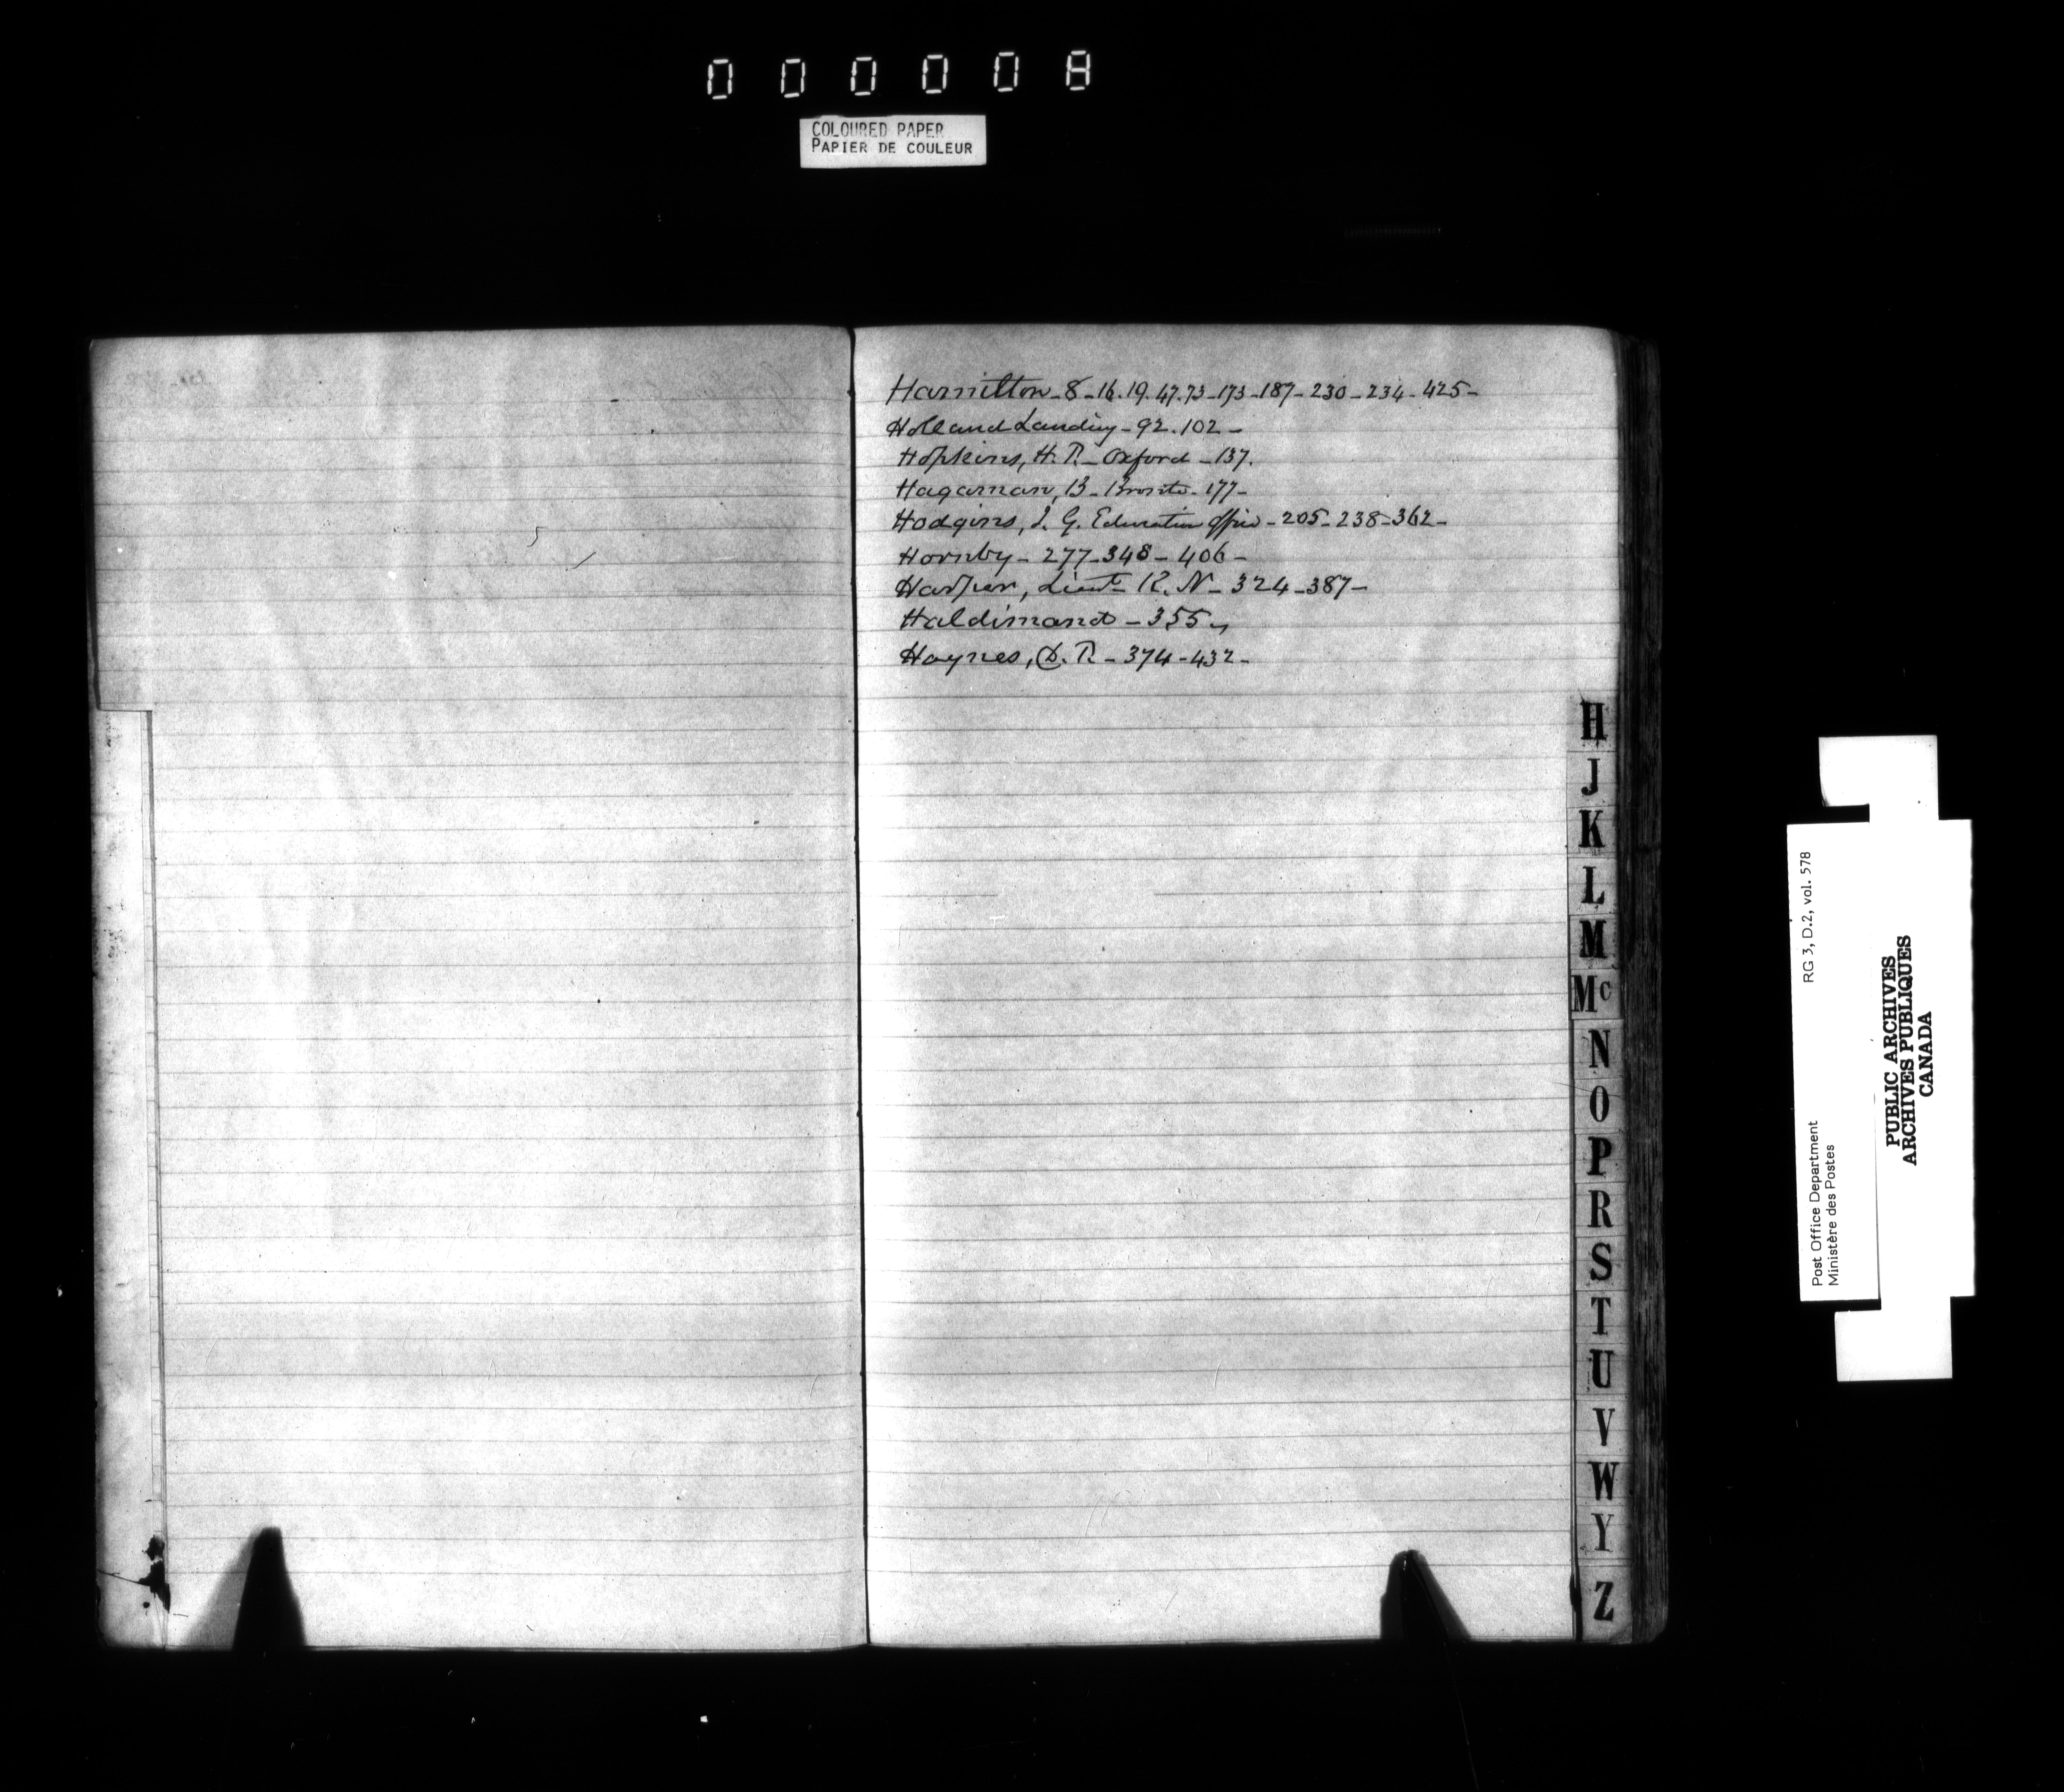 000008
COLOURED PAPER
PAPIER DE COULEUR
Hamilton - 8 - 16. 19. 47. 73 - 173 - 187 - 230 - 234 - 425 -
Holland Landing - 92. 102 -
Hopkins, H. R. - Oxford - 137.
Hagaman, B - Bronte - 177 -
Hodgins, J. G. Education Office - 205 - 238 - 362 -
Hornby - 277 - 348 - 406 -
Harper, Lieut R. N - 324 - 387 -
Haldimand - 355 -
Haynes, D. R - 374 - 432 -
H
J
K
L
M
Mc
N
O
P
R
S
T
U
V
W
Y
Z
Post Office Department
Ministère des Postes
RG 3, D.2, vol. 578
PUBLIC ARCHIVES
ARCHIVES PUBLIQUES
CANADA